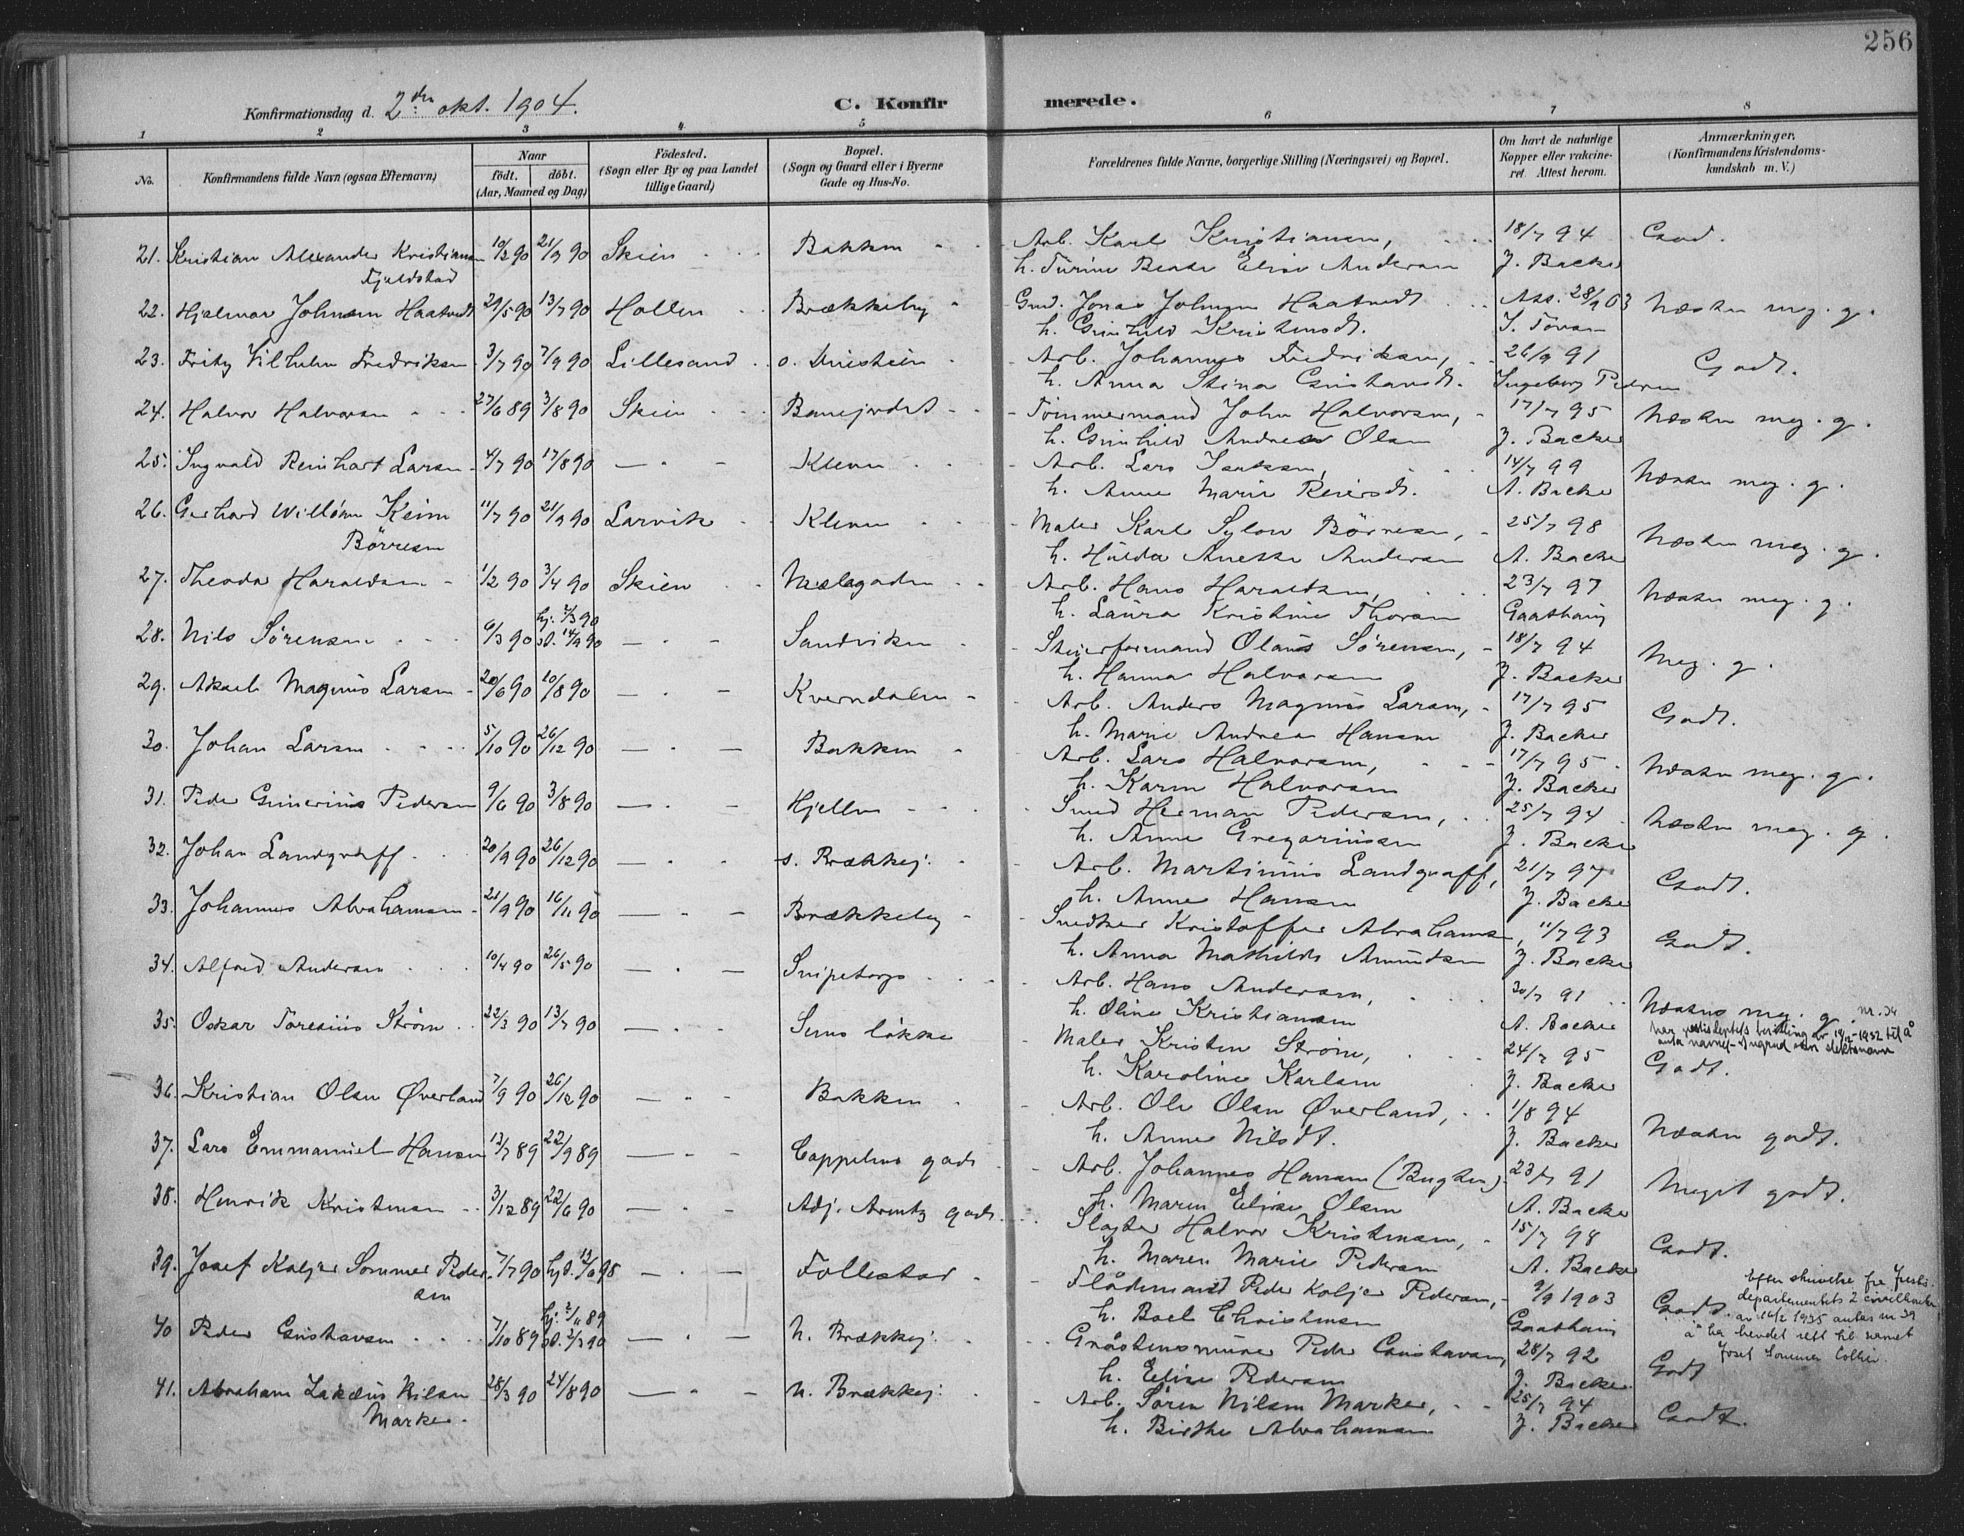 256
Konfirmationsdag d. 2den okt. 1904.
C. Konfirmerede.
1 2 3 4 5 6 7 8
No.
Konfirmandens fulde Navn (ogsaa Efternavn)
Naar
födt. döbt.
(Aar, Maaned og Dag)
Födested.
(Sogn eller By og paa Landet
tillige Gaard)
Bopæl.
(Sogn og Gaard eller i Byerne
Gade og Hus-No.
Forældrenes fulde Navne, borgerlige Stilling (Næringsvei) og Bopæl.
Om havt de naturlige
Kopper eller vakcine-
ret. Attest herom.
Anmærkninger.
(Konfirmandens Kristendoms-
kundskab m. V.)
21. Kristian Alexander Kristiansen 10/3 90 21/9 90 Skien Bakken Arb. Karl Kristiansen, 18/7 94 Godt.
Fjeldstad h. Turine Beate Elise Andersen J. Backer
22. Hjalmar Johnsen Haatvedt 29/5 90 13/7 90 Hollen Brækkeby Gmd. Jonas Johnsen Haatvedt Att. 28/9 03 Næsten meg. g.
h. Gunhild Kristensdt. S. Tovsen
23. Fritz Vilhelm Fredriksen 3/7 90 7/9 90 Lillesand Arb. Johannes Fredriksen, 26/9 91 Godt.
h. Anna Stina Gustavsdt. Ingeborg Pedersen
24. Halvor Halvorsen 27/6 89 3/8 90 Skien Tömmermand John Halvorsen, 17/7 95 Næsten meg. g.
h. Gunhild Andrea Olsen J. Backer
25. Ingvald Reinhart Larsen 4/7 90 17/8 90 — " — Kleven Arb. Lars Isaksen, 14/7 99 Næsten meg. g.
h. Anne Marie Reiersdt. A. Backer
26. Gerhard Willöhm Keim 11/7 90 21/9 90 Larvik Kleven Maler Karl Sylow Börresen, 25/7 98 Næsten meg. g.
Börresen h. Hulda Anette Andersen A. Backer
27. Theodor Haraldsen 1/2 90 3/4 90 Skien Mælagaden Arb. Hans Haraldsen, 23/7 97 Næsten meg. g.
h. Laura Kristine Thorsen Gaathaug
28. Nils Sörensen 6/3 90 hj. 7/3 90 — " — Sandviken Stuerformand Olaus Sörensen, 18/7 94 Meg. g.
st. 14/9 90 h. Hanna Halvorsen J. Backer
29. Aksel Magnus Larsen 20/6 90 10/8 90 — " — Kverndalen Arb. Anders Magnus Larsen, 17/7 95 Godt.
h. Marie Andrea Hansen J. Backer
30. Johan Larsen 5/10 90 26/12 90 — " — Bakken Arb. Lars Halvorsen, 17/7 95 Næsten meg. g.
h. Karen Halvorsen J. Backer
31. Peder Gunerius Pedersen 9/6 90 3/8 90 — " — Hjellen Smed Herman Pedersen, 25/7 94 Næsten meg. g.
h. Anne Gregoriussen J. Backer
32. Johan Landgraff 20/9 90 26/12 90 — " — s. Brækkej: Arb. Martinius Landgraff, 21/7 97 Godt.
h. Anne Hansen J. Backer
33. Johannes Abrahamsen 21/9 90 16/11 90 — " — Brækkeby Snedker Kristoffer Abrahamsen, 11/7 93 Godt.
h. Anna Mathilde Amundsen J. Backer
34. Alfred Andersen 10/4 90 26/5 90 — " — Snipetorp Arb. Hans Andersen, 30/7 91 Næsten meg. g.
h. Oline Kristiansen A. Backer
nr. 34
35. Oskar Toresius Ström 22/3 90 13/7 90 — " — Sems lökke Maler Kristen Ström, 24/7 95 Godt.
h. Karoline Karlsen J. Backer
36. Kristian Olsen Överland 7/9 90 26/12 90 — " — Bakken Arb. Ole Olsen Överland, 1/8 94 Næsten godt.
h. Anne Nilsdt. J. Backer
37. Lars Emmanuel Hansen 13/7 89 22/9 89 — " — Cappelens gade Arb. Johannes Hansen (Bugden) 23/7 91 Meget godt.
h. Maren Elise Olsen A. Backer
38. Henrik Kristensen 3/12 89 22/6 90 — " — Adj. Arentz gade Slagter Halvor Kristensen, 15/7 98 Godt.
h. Maren Marie Pedersen A. Backer
39. Josef Koljer Sommer Peder- 7/7 90 hj. d. 13/6 98 — " — Follestad Flådemand Peder Koljer Pedersen, 9/9 1903 Godt.
sen h. Boel Christensen Gaathaug
Efter skrivelse fra Justis-
departementets 2 civilkontor
av 16/2 1935 antas nr 39
å ha hevdet rett til navnet
Josef Sommer Collier.
40 Peder Gustavsen 7/10 89 hj. 2/11 89 — " — n. Brækkej: Gråstensmurer Peder Gustavsen, 28/7 92 Godt
st. 2/3 90 h. Elise Pedersen J. Backer
41. Abraham Zakæus Nilsen 28/3 90 24/8 90 — " — n. Brækkej: Arb. Sören Nilsen Marker, 25/7 94 Godt.
Marker. h. Birthe Abrahamsen J. Backer